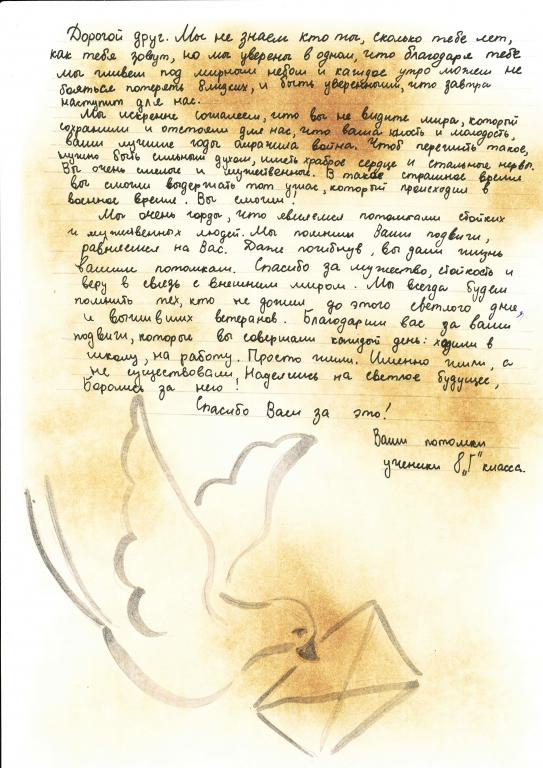 Дорогой друг. Мы не знаем кто ты, сколько тебе лет,
как тебя зовут, но мы уверены в одном, что благодаря тебе
мы живем под мирным небом и каждое утро можем не
бояться потерять близких, и быть уверенными, что завтра
наступит для нас.
Мы искренне сожалеем, что вы не видите мира, который
сохранили и отстояли для нас, что ваша юность и молодость,
ваши лучшие годы омрачила война. Чтоб пережить такое,
нужно быть сильным духом, иметь храброе сердце и стальные нервы.
Вы очень смелые и мужественные. В такое страшное время
вы смогли выдержать тот ужас, который происходил в
военное время. Вы смогли!
Мы очень горды, что являемся потомками стойких
и мужественных людей. Мы помним Ваши подвиги,
равняемся на Вас. Даже погибнув, вы дали жизнь
вашим потомкам. Спасибо за мужество, стойкость и
веру в связь с внешним миром. Мы всегда будем
помнить тех, кто не дожил до этого светлого дня,
и выживших ветеранов. Благодарим вас за ваши
подвиги, которые вы совершали каждый день: ходили в
школу, на работу. Просто жили. Именно жили, а
не существовали. Надеялись на светлое будущее,
Боролись за него!
Спасибо Вам за это!
Ваши потомки
ученики 8„Г" класса.